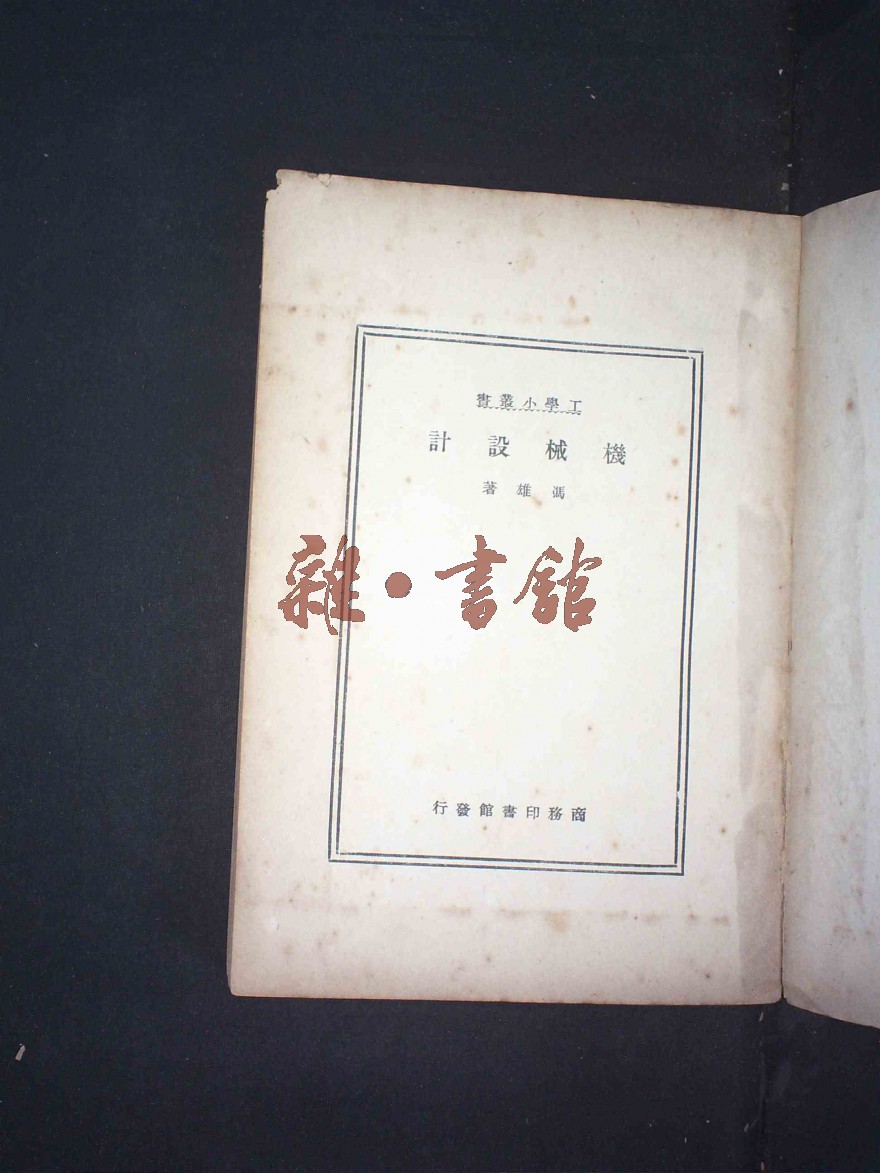 工學小叢書
機械設計
馮雄著
雜·書館
商務印書館發行